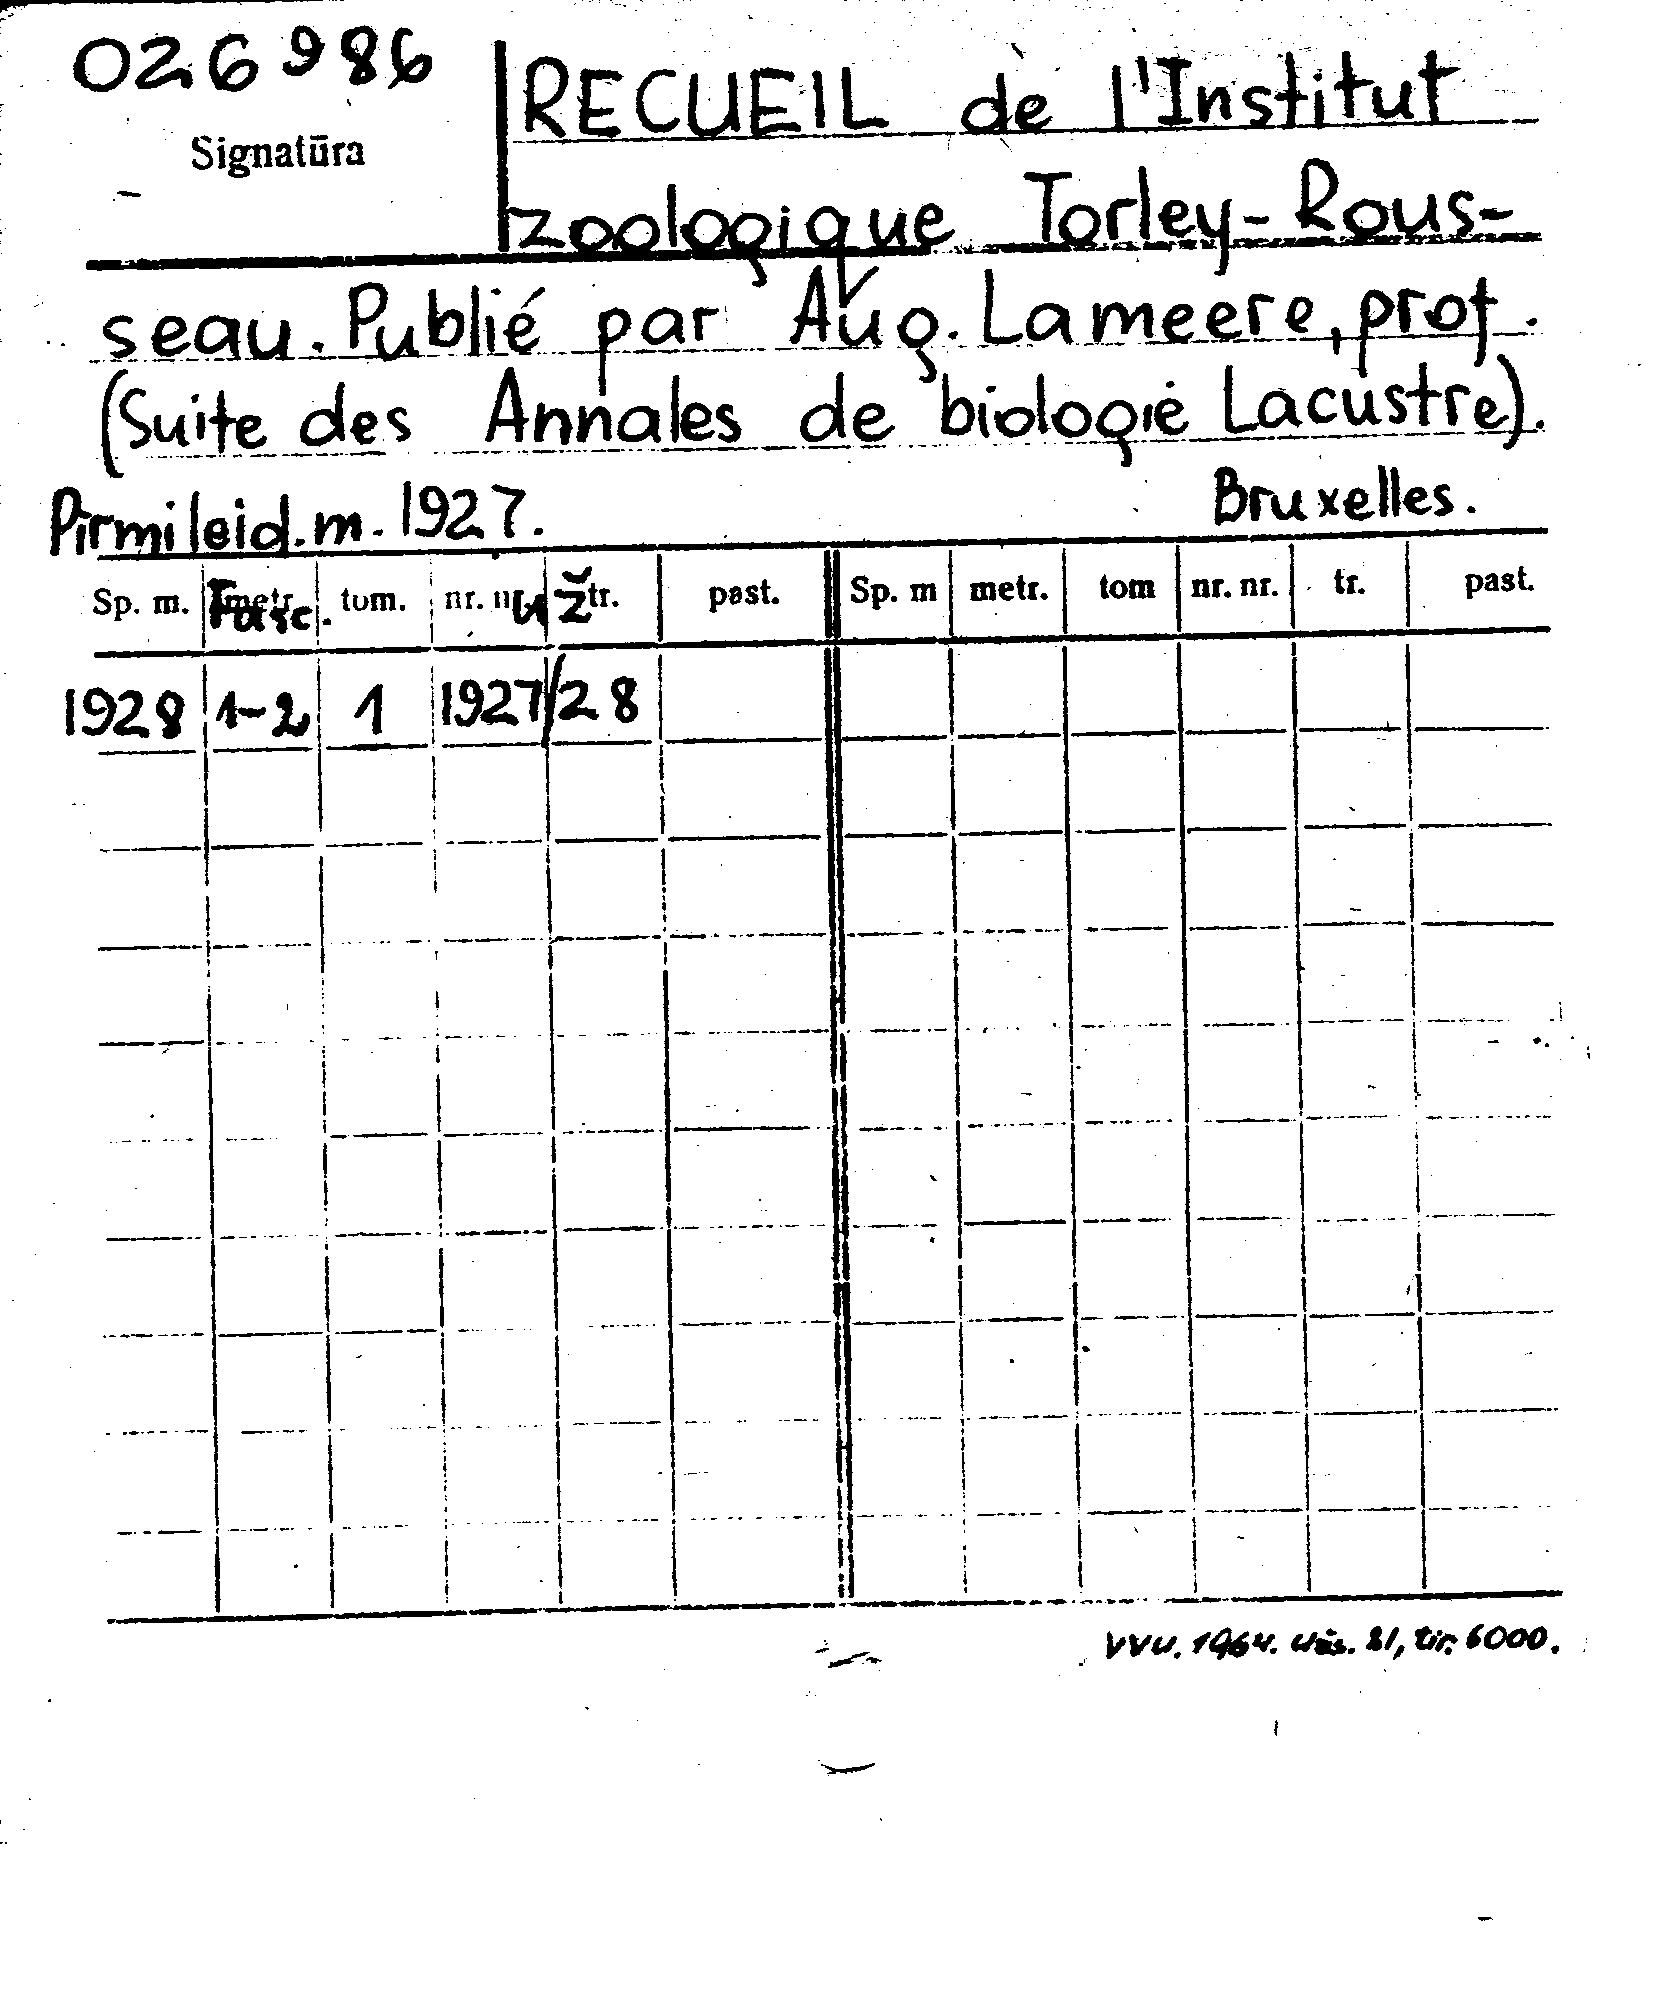 026986
Signatūra
RECUEIL de l'Institut
zoologique Torley-Rous-
seau. Publié par Aug. Lameere, prof.
(Suite des Annales de biologie Lacustre).
Pirmileid.m. 1927. Bruxelles.
Sp. m. Fasc. tom. nr. tr. past. Sp. m metr. tom nr. nr. tr. past.
1928 1-2 1 1927/28
VVU. 1964. Užs. 81, tir. 6000.